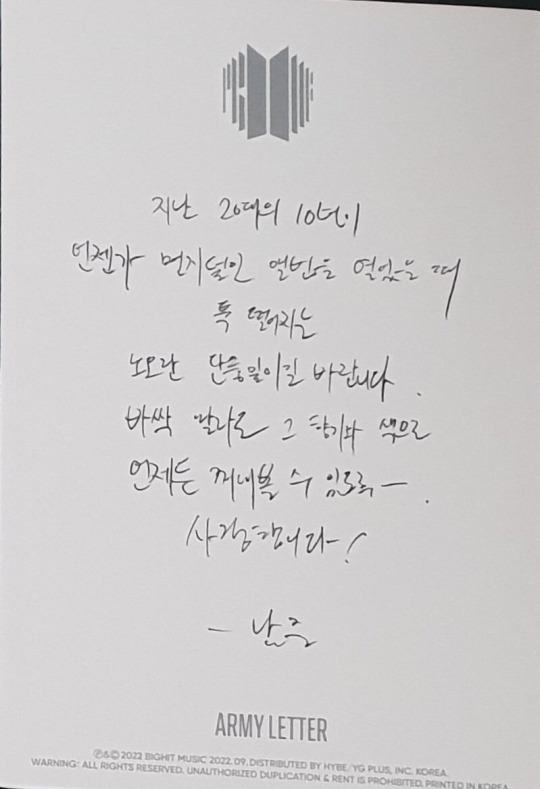 지난 20대의 10년이
언젠가 먼지덮인 앨범을 열었을 때
툭 떨어지는
노오란 단풍잎이길 바랍니다.
바싹 말라도 그 향기와 색으로
언제든 꺼내볼 수 있도록—.
사랑합니다!
- 남준
ARMY LETTER
℗&© 2022 BIGHIT MUSIC 2022. 09. DISTRIBUTED BY HYBE/YG PLUS, INC. KOREA.
WARNING: ALL RIGHTS RESERVED. UNAUTHORIZED DUPLICATION & RENT IS PROHIBITED. PRINTED IN KOREA